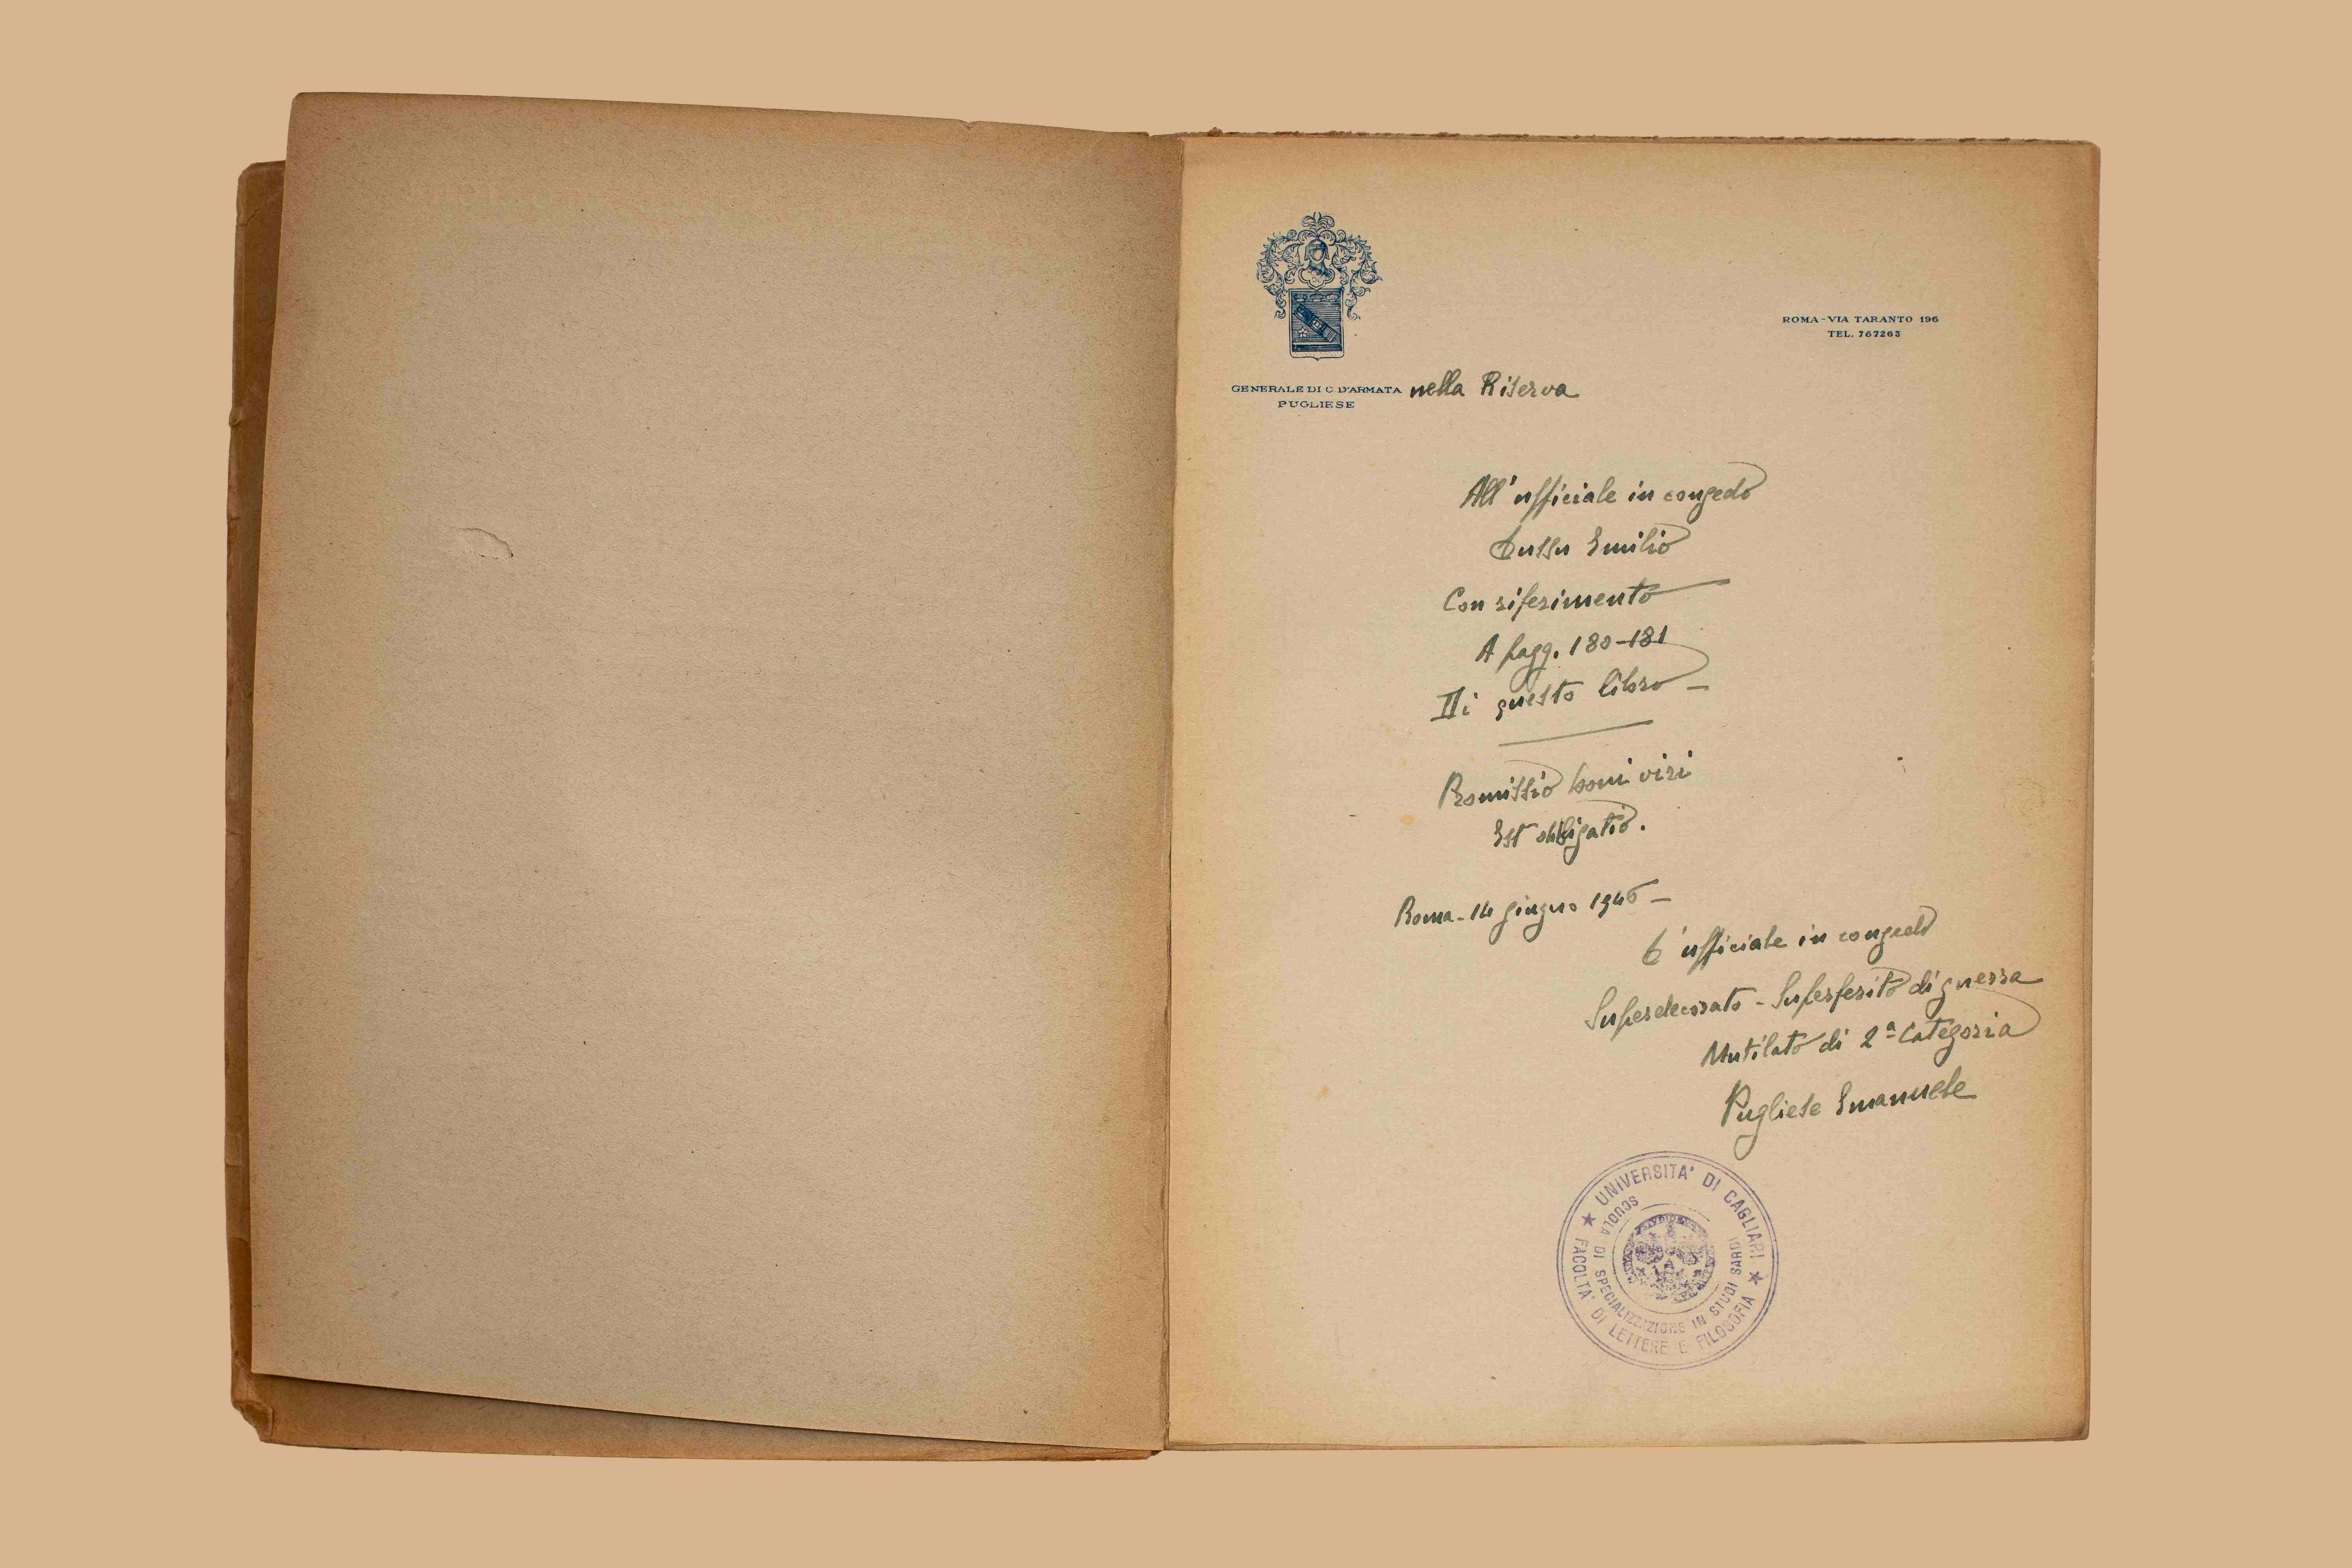 ROMA - VIA TARANTO 196
TEL. 767263
GENERALE DI C D'ARMATA nella Riserva
PUGLIESE
All'ufficiale in congedo
Lussu Emilio
Con riferimento
A pagg. 180-181
Di questo libro —
Promissio boni viri
Est obligatio.
Roma - 14 giugno 1946 —
L'ufficiale in congedo
Superdecorato - Superferito di guerra
Mutilato di 2ª categoria
Pugliese Emanuele
★ UNIVERSITA' DI CAGLIARI ★
FACOLTA' DI LETTERE E FILOSOFIA
SCUOLA DI SPECIALIZZAZIONE IN STUDI SARDI